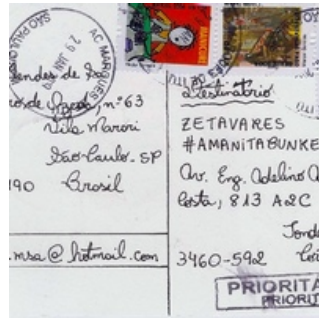 SÃO PAULO
AC MARQUES
29 JAN
MANICURE
endes de Sá
nº 63
Vila Marari
São Paulo - SP
190 Brasil
.msa@hotmail.com
Destinatário
ZETAVARES
#AMANITABUNKE
Av. Eng. Adelino A
Costa, 813 A2C
Tonde
3460-592
PRIORITA
PRIORIT